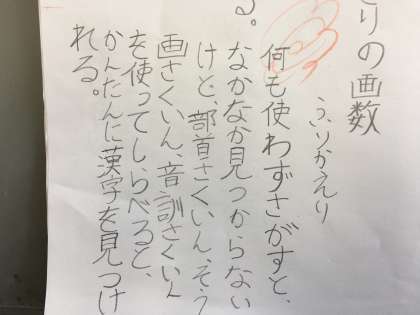 とりの画数
る。
ふりかえり
何も使わずさがすと、
なかなか見つからない
けど、部首さくいん、そう
画さくいん、音訓さくいん
を使ってしらべると、
かんたんに漢字を見つけ
れる。